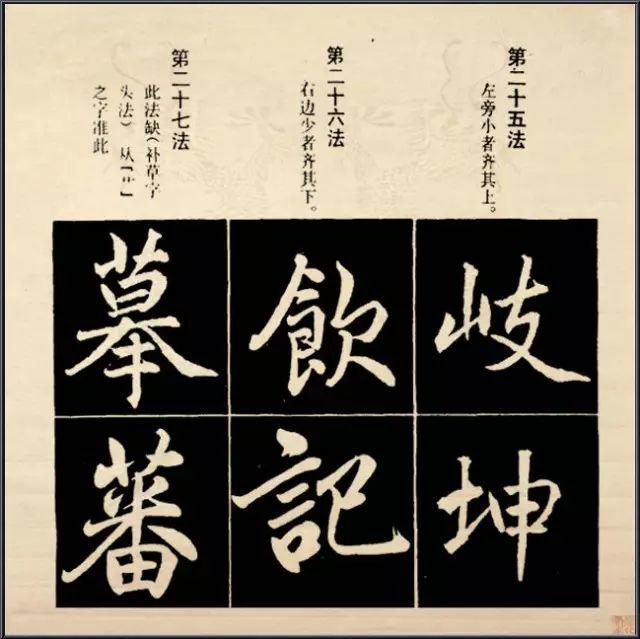 第二十五法
左旁小者齐其上。
岐
坤
第二十六法
右边少者齐其下。
飲
記
第二十七法
此法缺（补草字
头法）从【艹】
之字准此
摹
蕃